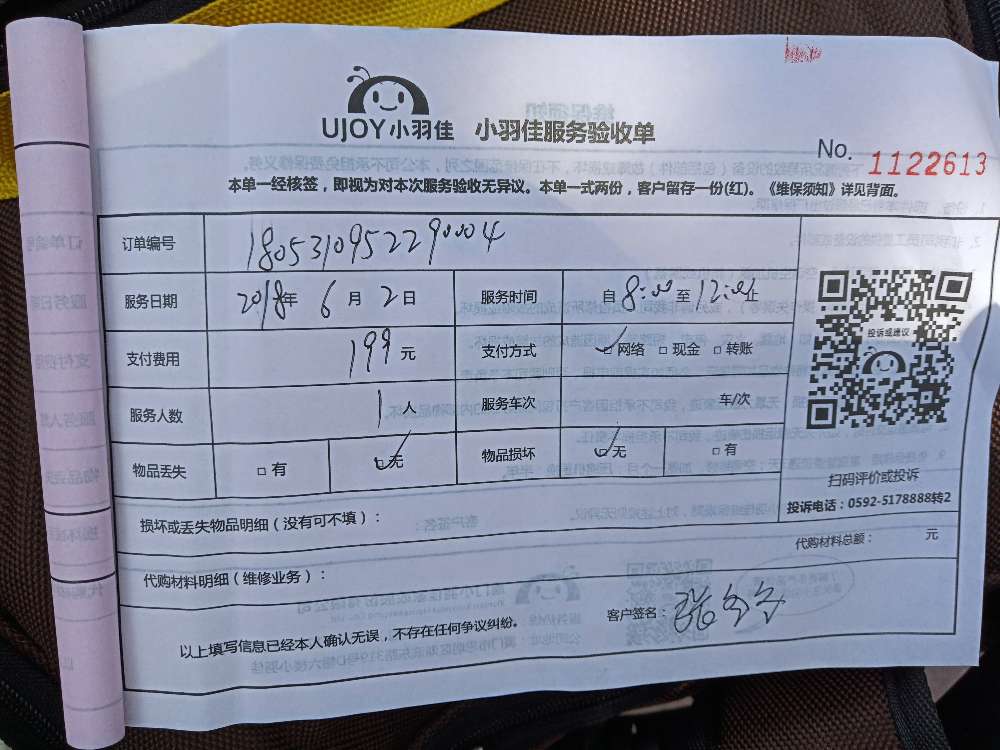 UJOY小羽佳 小羽佳服务验收单
No. 1122613
本单一经核签，即视为对本次服务验收无异议。本单一式两份，客户留存一份(红)。《维保须知》详见背面。
订单编号 1805310952290004
服务日期 2018年 6 月 2 日 服务时间 自 8:00 至 12:00 止
投诉或建议
支付费用 199 元 支付方式 ☑网络 □现金 □转账
服务人数 1 人 服务车次 车/次
物品丢失 □有 ☑无 物品损坏 ☑无 □有
扫码评价或投诉
投诉电话：0592-5178888转2
损坏或丢失物品明细（没有可不填）：
代购材料总额： 元
代购材料明细（维修业务）：
客户签名：
以上填写信息已经本人确认无误，不存在任何争议纠纷。